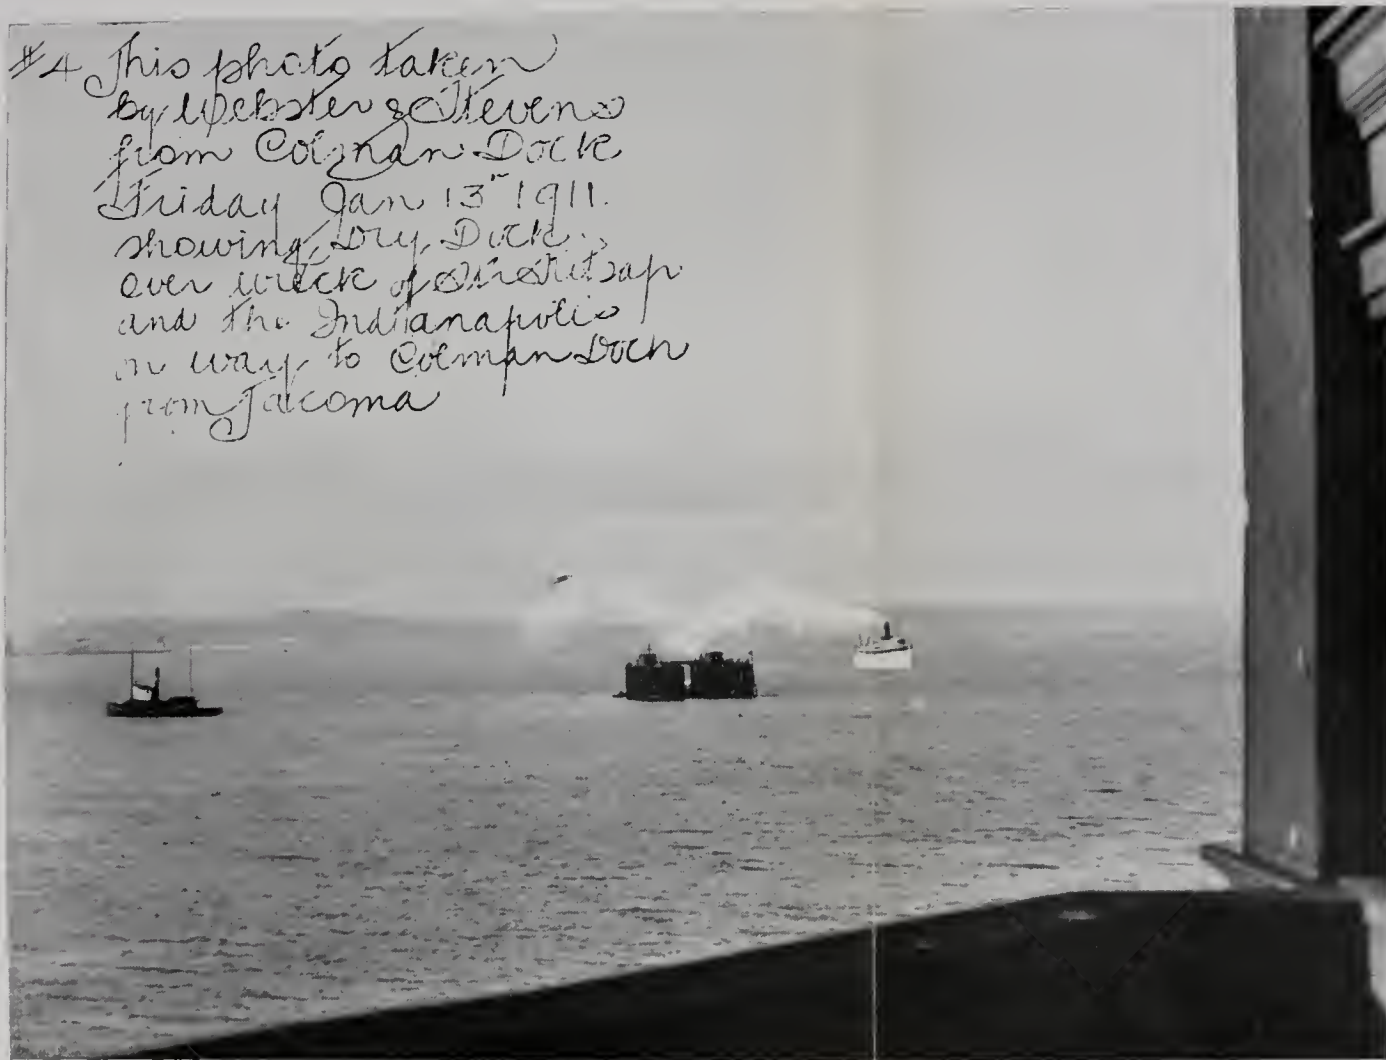 #4 This photo taken
by Webster & Stevens
from Colman Dock
Friday Jan 13" 1911.
showing Dry Dock
over wreck of Str Kitsap
and the Indianapolis
on way to Colman Dock
from Tacoma